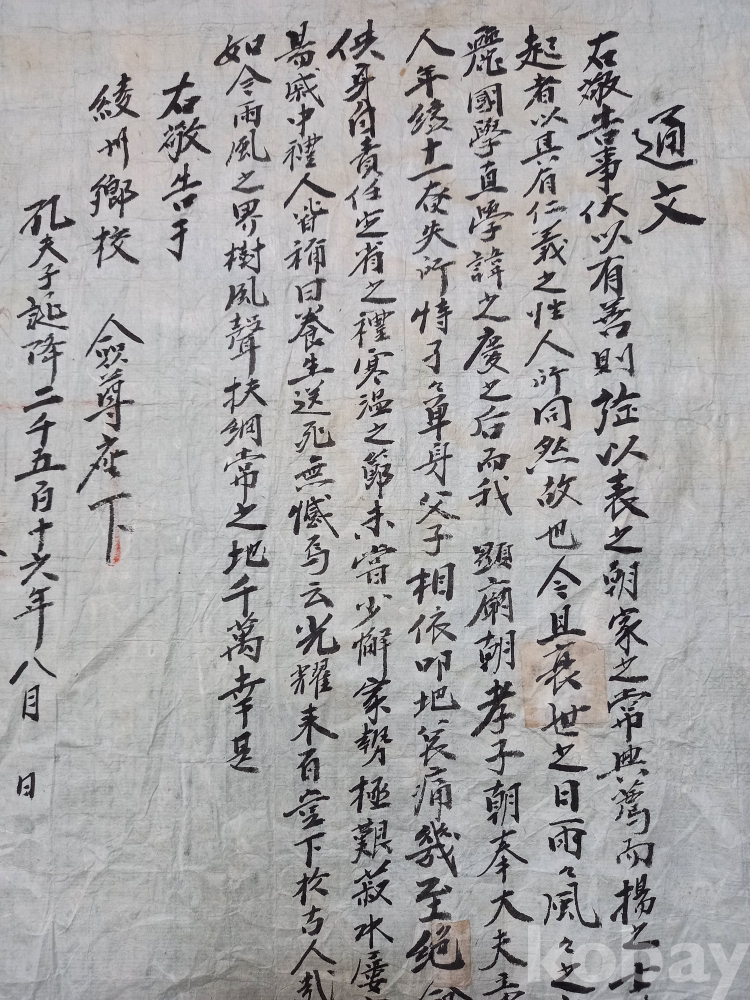 通文
右敬告事伏以有善則旌以表之朝家之常典薦而揚之士
起者以其有仁義之性人所同然故也今且衰世之日雨〻風〻之
麗國學直學諱之慶之后而我 顯廟朝孝子朝奉大夫
人年纔十一夜失所恃孑〻單身父子相依叩地哀痛幾至絶
供身自責任定省之禮寒溫之節未嘗少懈家勢極艱菽水屢
易戚中禮人皆稱曰養生送死無憾焉云光耀來百世下於古人哉
如今雨風之界樹風聲扶綱常之地千萬幸甚
右敬告于
綾州鄕校 僉尊座下
孔夫子誕降二千五百十六年八月 日
kobay